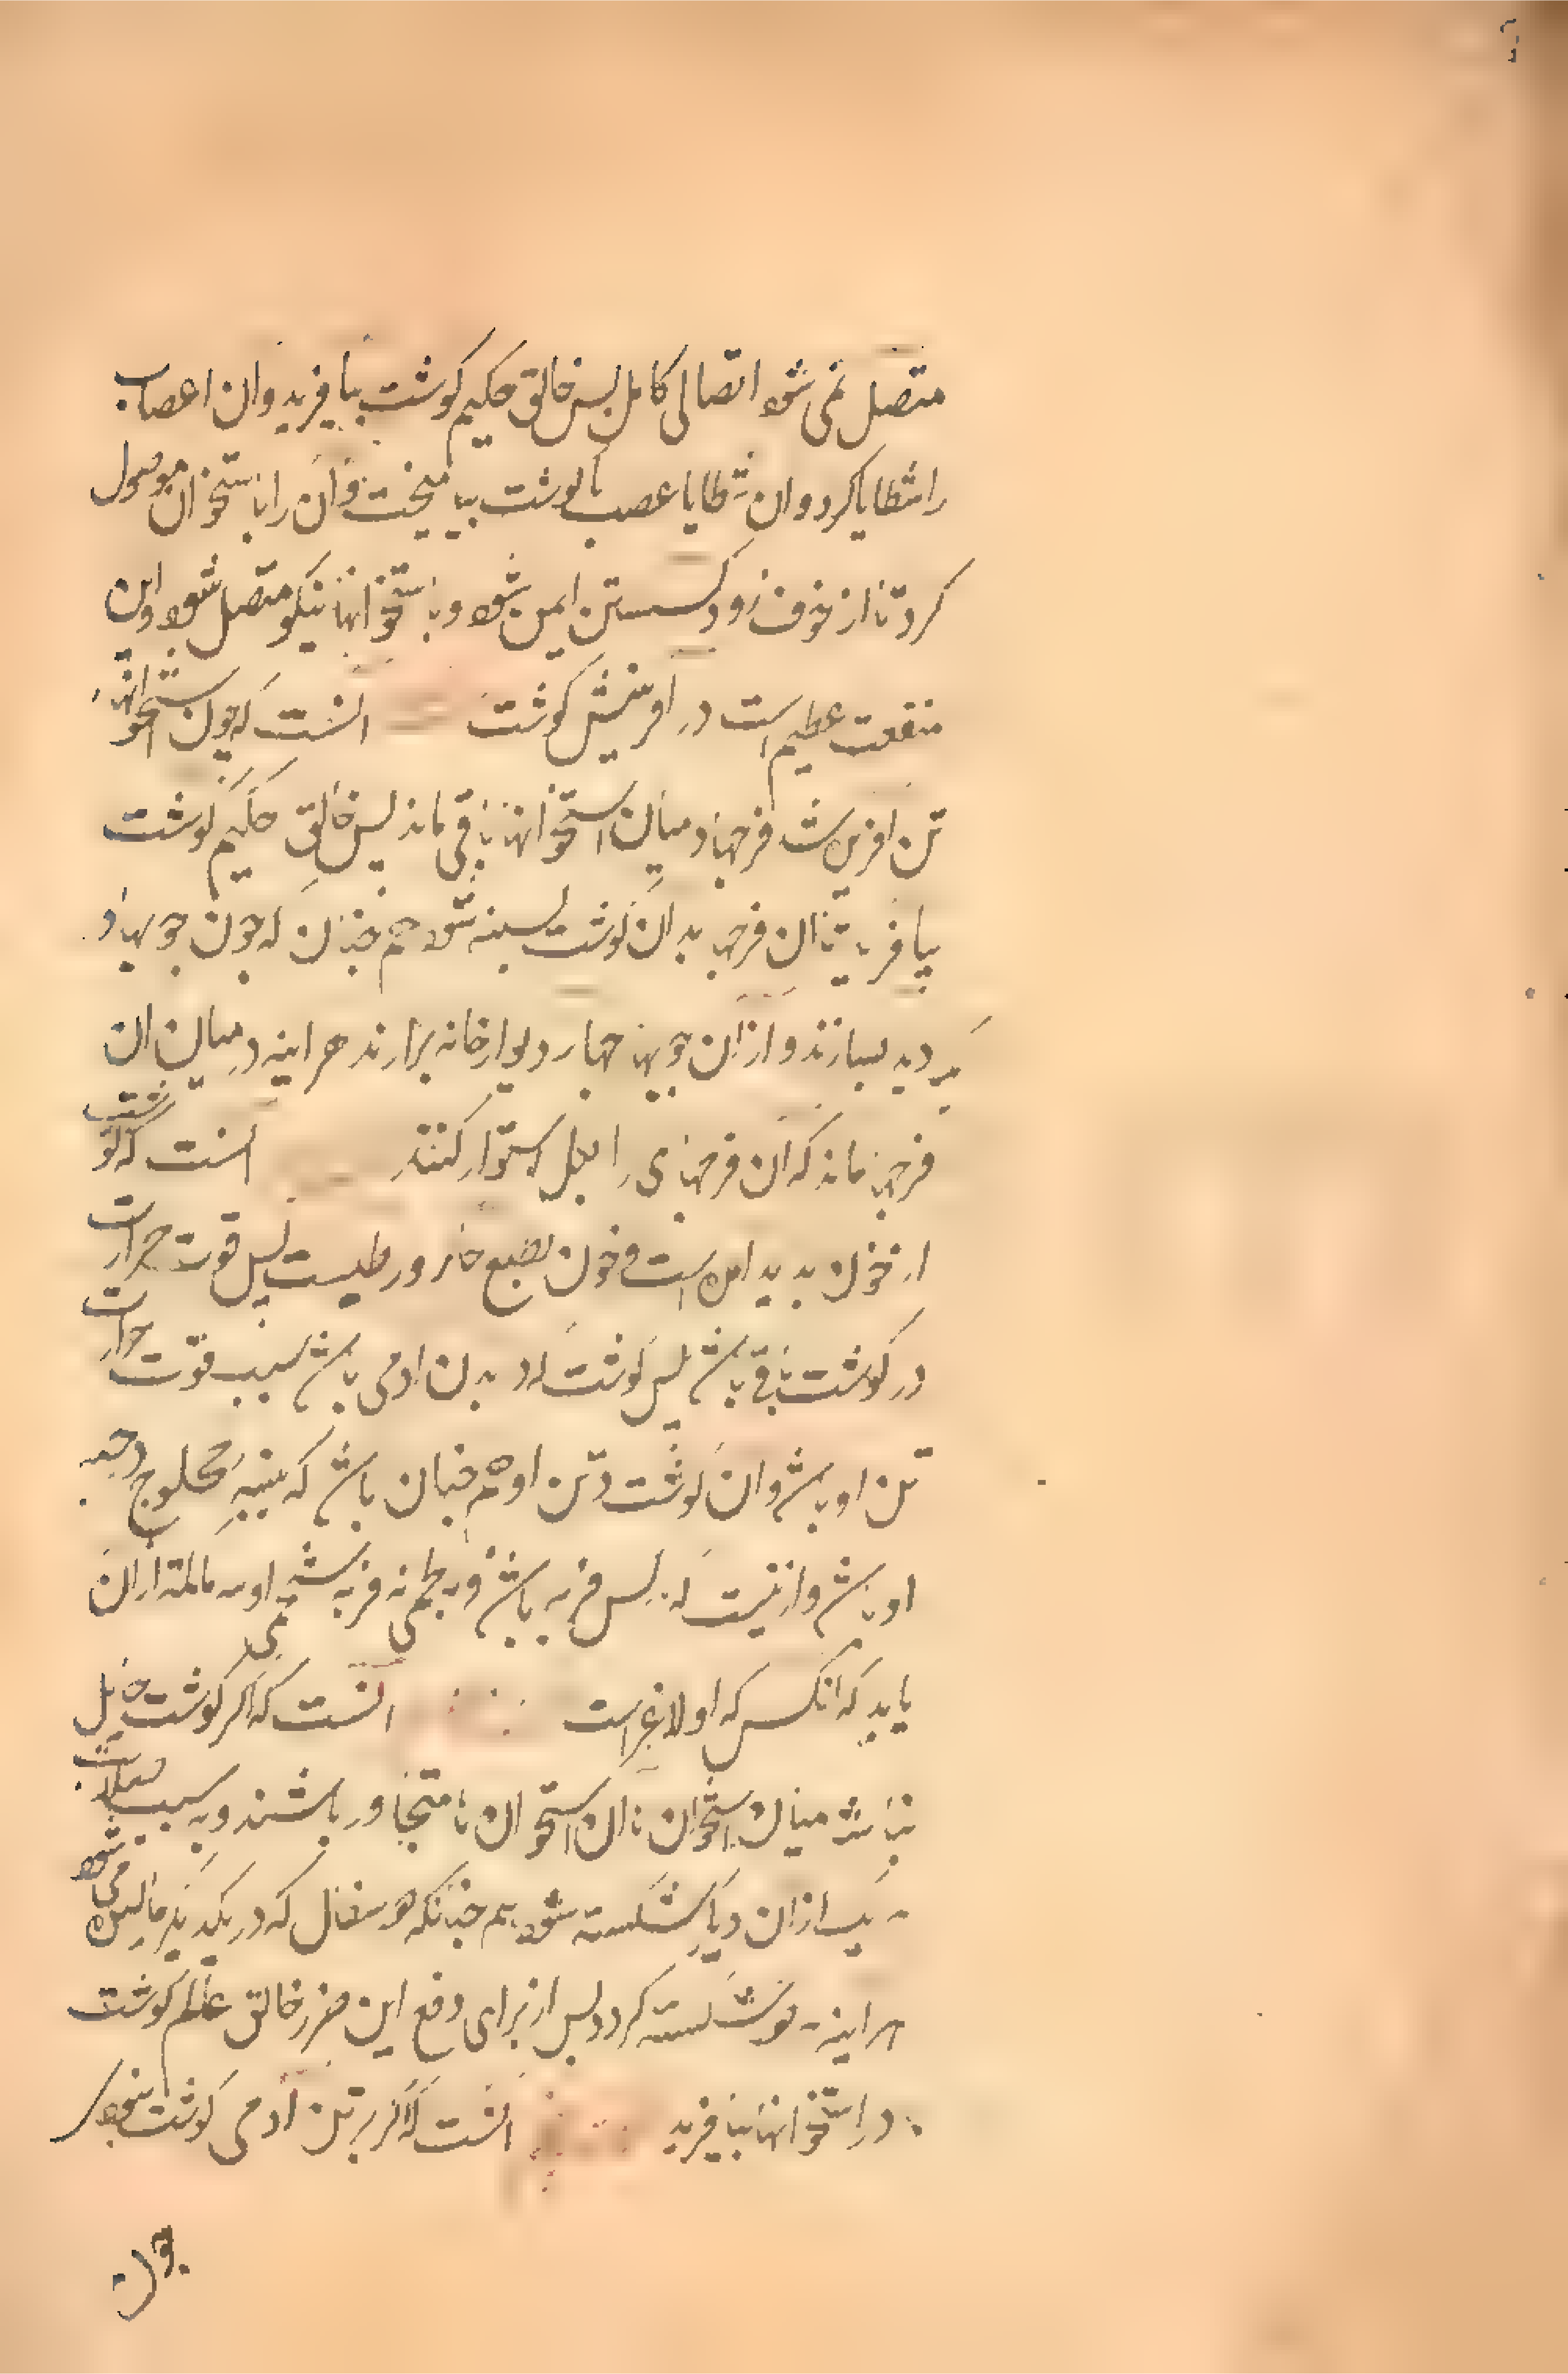 متصل نمی شود اتصالی کامل پس خالق حکیم کوشت بیافرید وان اعصاب
را شظایا کرد و ان شظایا عصب با کوشت بیامیخت و آن را باستخوان موصول
کرد تا از خوف زود کسستن ایمن شود و باستخوانها نیکو متصل شود و این
منفعت عظیم است در آفرینش کوشت انست که چون استخوانهاء
تن افریده شد فرجها در میان استخوانها باقی ماند پس خالق حکیم کوشت
بیافرید تا ان فرجها بدان کوشت بسته شود هم چنان که چون چوبها در
بسازند و از ان چوبها چهار دیوار خانه برارند هر اینه در میان ان
فرجها ماند که ان فرجهای را بکل استوار کنند انست که کوشت
از خون بدید امده است و خون بطبع حار و رطبست پس قوت حرارت
در کوشت باقی باشد پس کوشت در بدن ادمی باشد سبب قوت حرارت
تن او باشد و ان کوشت در تن او همچنان باشد که پنبه محلوج در جبه
او باشد و از اینست که هر کس فربه باشد و به لحمی نه فربه شحمی او سرما کمتر از ان
یابد که انکس که او لاغر است انست که اکر کوشت حایل
نباشد میان استخوان تا ان استخوان با متجاور باشند و به سبب صلابت
یک از ان دیکر شکسته شود هم چنانکه هر سفال که در یکدیکر مالیده می شود
هر اینه شکسته کردد پس از برای دفع این ضرر خالق عالم کوشت
در استخوانها بیافرید انست که اکر بر تن ادمی کوشت نبود
چون